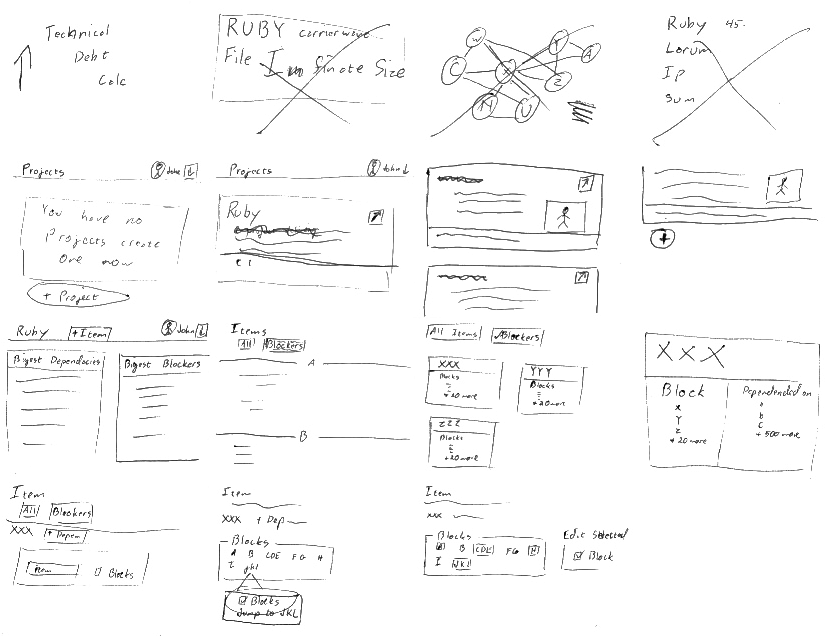 Technical
Debt
Calc
RUBY cornerwave
File Im finate Size
W
Y
A
C
X
Z
U
Ruby 45.
Lorum
Ip
Sum
Projects John
You have no
Projects create
one now
+ Project
Projects John
Ruby
+
Ruby + Item John
Bigest Dependacies
Bigest Blockers
Items
All Blockers
A
B
All Items Blockers
XXX
Blocks
+20 more
YYY
Blocks
+20more
ZZZ
Blocks
+20 more
XXX
Block
X
Y
Z
+20 more
Dependended on
a
b
c
+500 more
Item
All Blockers
XXX + Depen
Item Blocks
Item
XXX + Dep
Blocks
A B CDE FG H
I jkl
Blocks
Jump to JKL
Item
XXX
Blocks
A B CDE FG H
I JKL
Edit Selected
Block